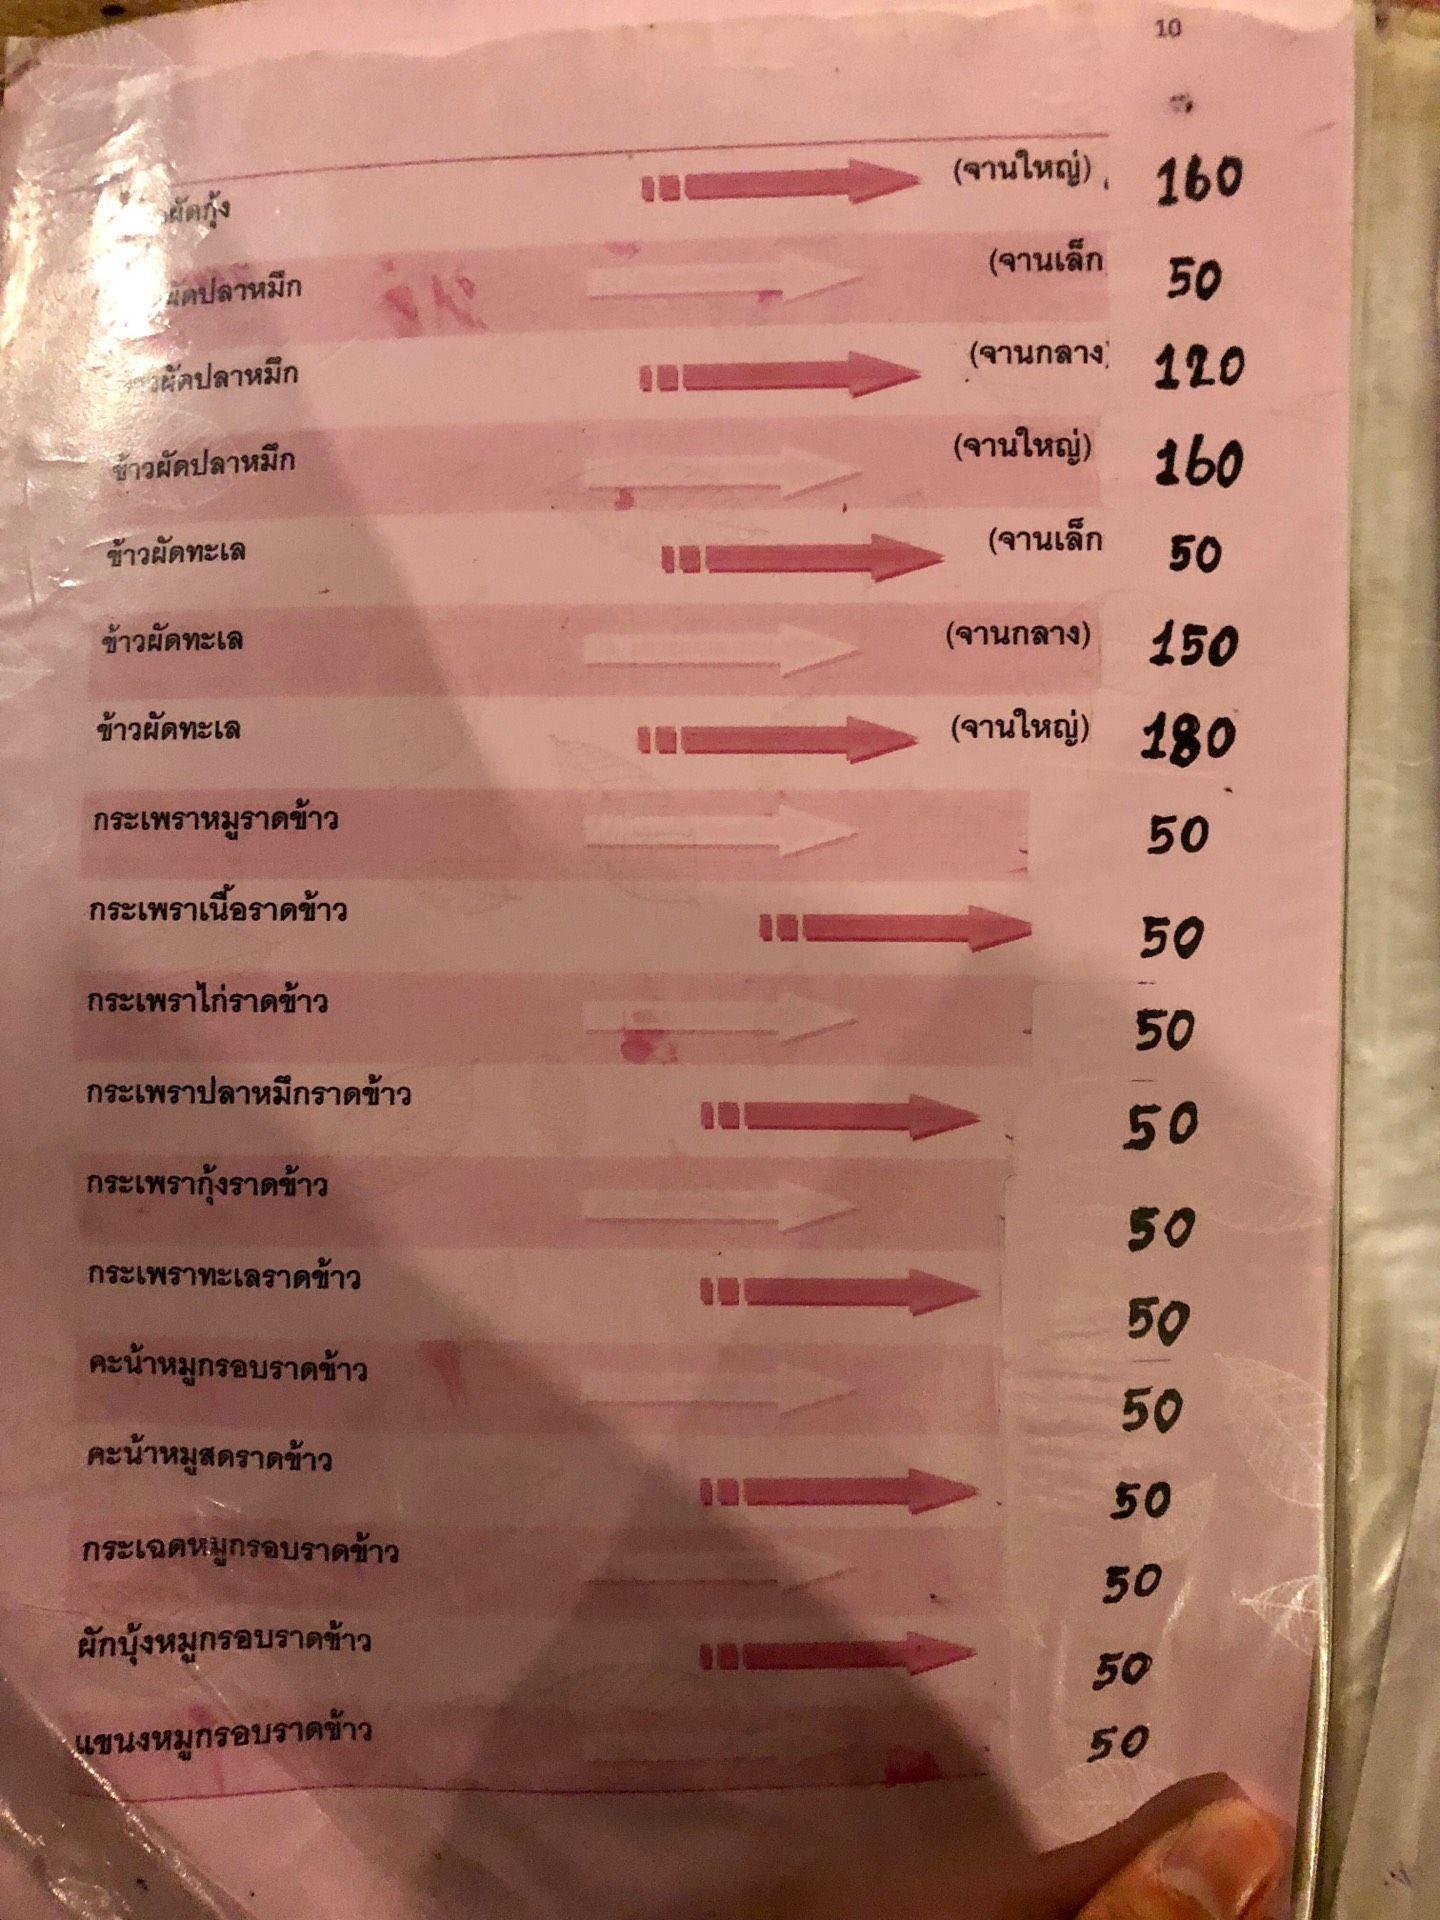 10
ผัดกุ้ง (จานใหญ่) 160
ผัดปลาหมึก (จานเล็ก 50
ผัดปลาหมึก (จานกลาง) 120
ข้าวผัดปลาหมึก (จานใหญ่) 160
ข้าวผัดทะเล (จานเล็ก 50
ข้าวผัดทะเล (จานกลาง) 150
ข้าวผัดทะเล (จานใหญ่) 180
กระเพราหมูราดข้าว 50
กระเพราเนื้อราดข้าว 50
กระเพราไก่ราดข้าว 50
กระเพราปลาหมึกราดข้าว 50
กระเพรากุ้งราดข้าว 50
กระเพราทะเลราดข้าว 50
คะน้าหมูกรอบราดข้าว 50
คะน้าหมูสดราดข้าว 50
กระเฉดหมูกรอบราดข้าว 50
ผักบุ้งหมูกรอบราดข้าว 50
แขนงหมูกรอบราดข้าว 50